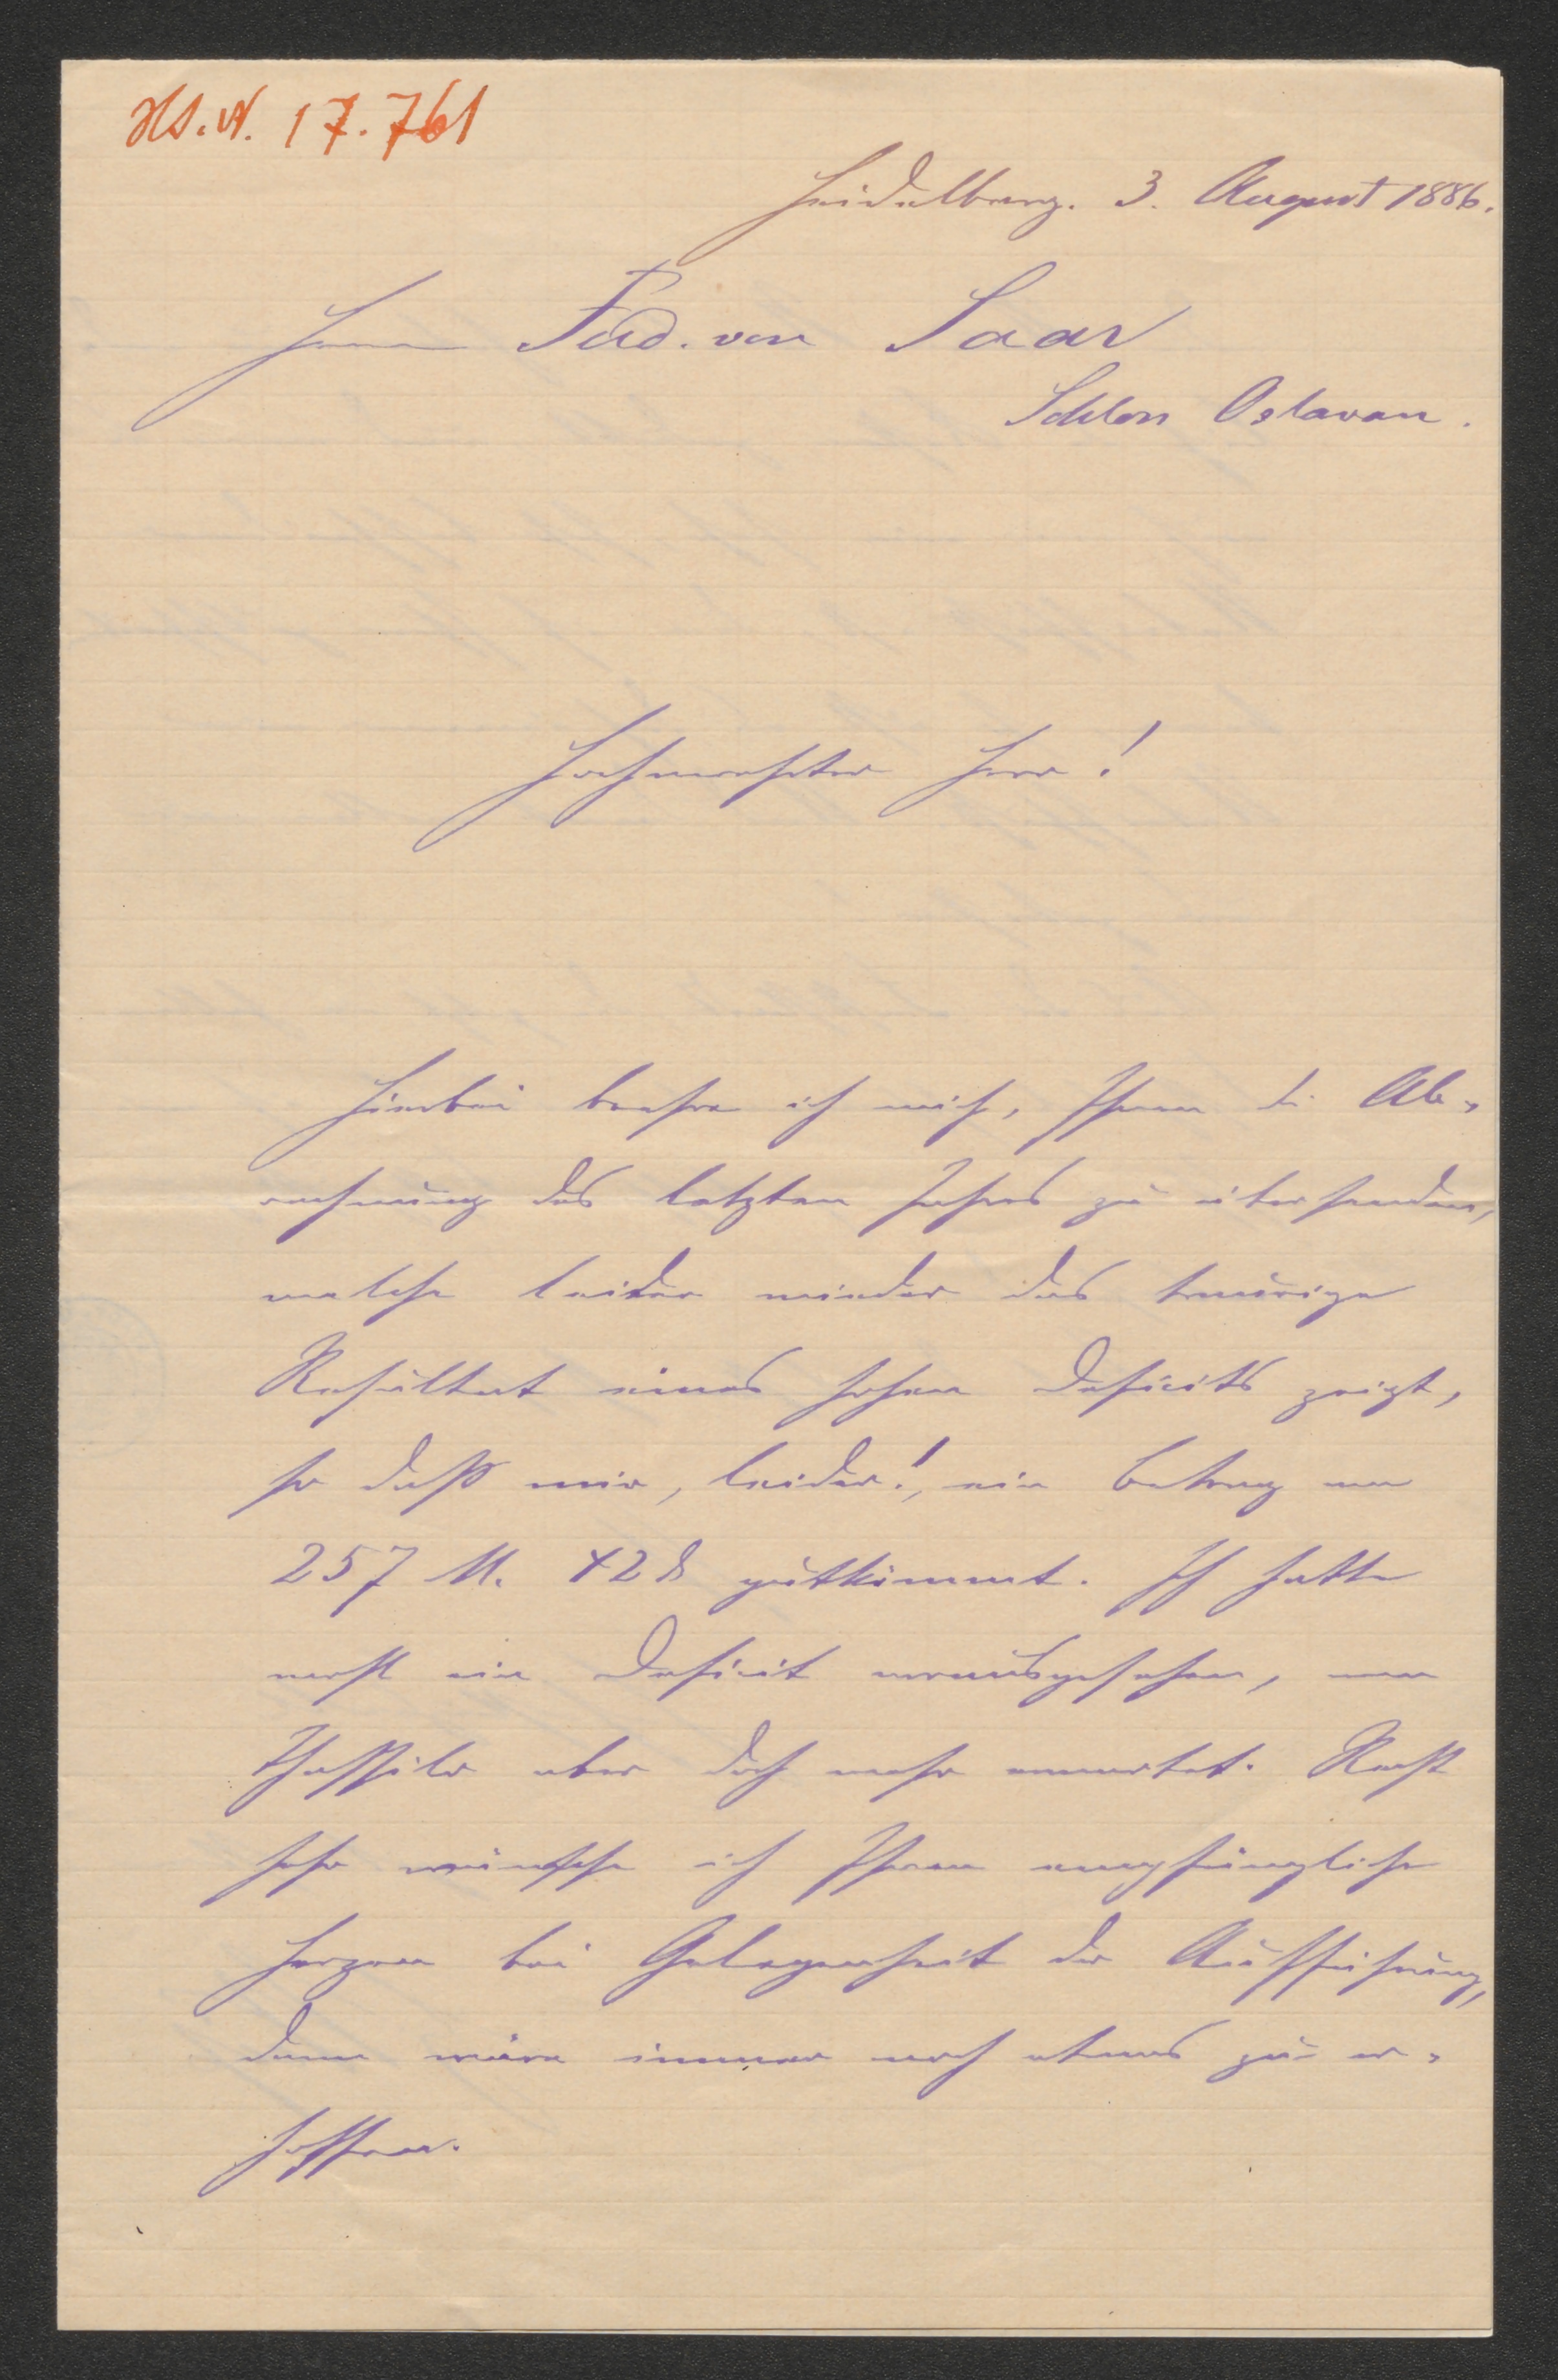 Hs.N. 17.761
Heidelberg. 3. August 1886.
Herrn Ferd. von Saar
Schloss Oslavan.
Hochverehrter Herr!
Hierbei beehre ich mich, Ihnen die Ab-
rechnung des letzten Jahres zu übersenden,
welche leider wieder das traurige
Resultat eines hohen Deficits zeigt,
so daß mir, leider!, ein Betrag von
257 M. 42 ₰ gutkommt. Ich hatte
wohl ein Deficit vorausgesehen, von
Thassilo aber doch mehr erwartet. Recht
sehr wünsche ich Ihnen empfängliche
Herzen bei Gelegenheit der Aufführung,
dann wäre immer noch etwas zu er-
hoffen.